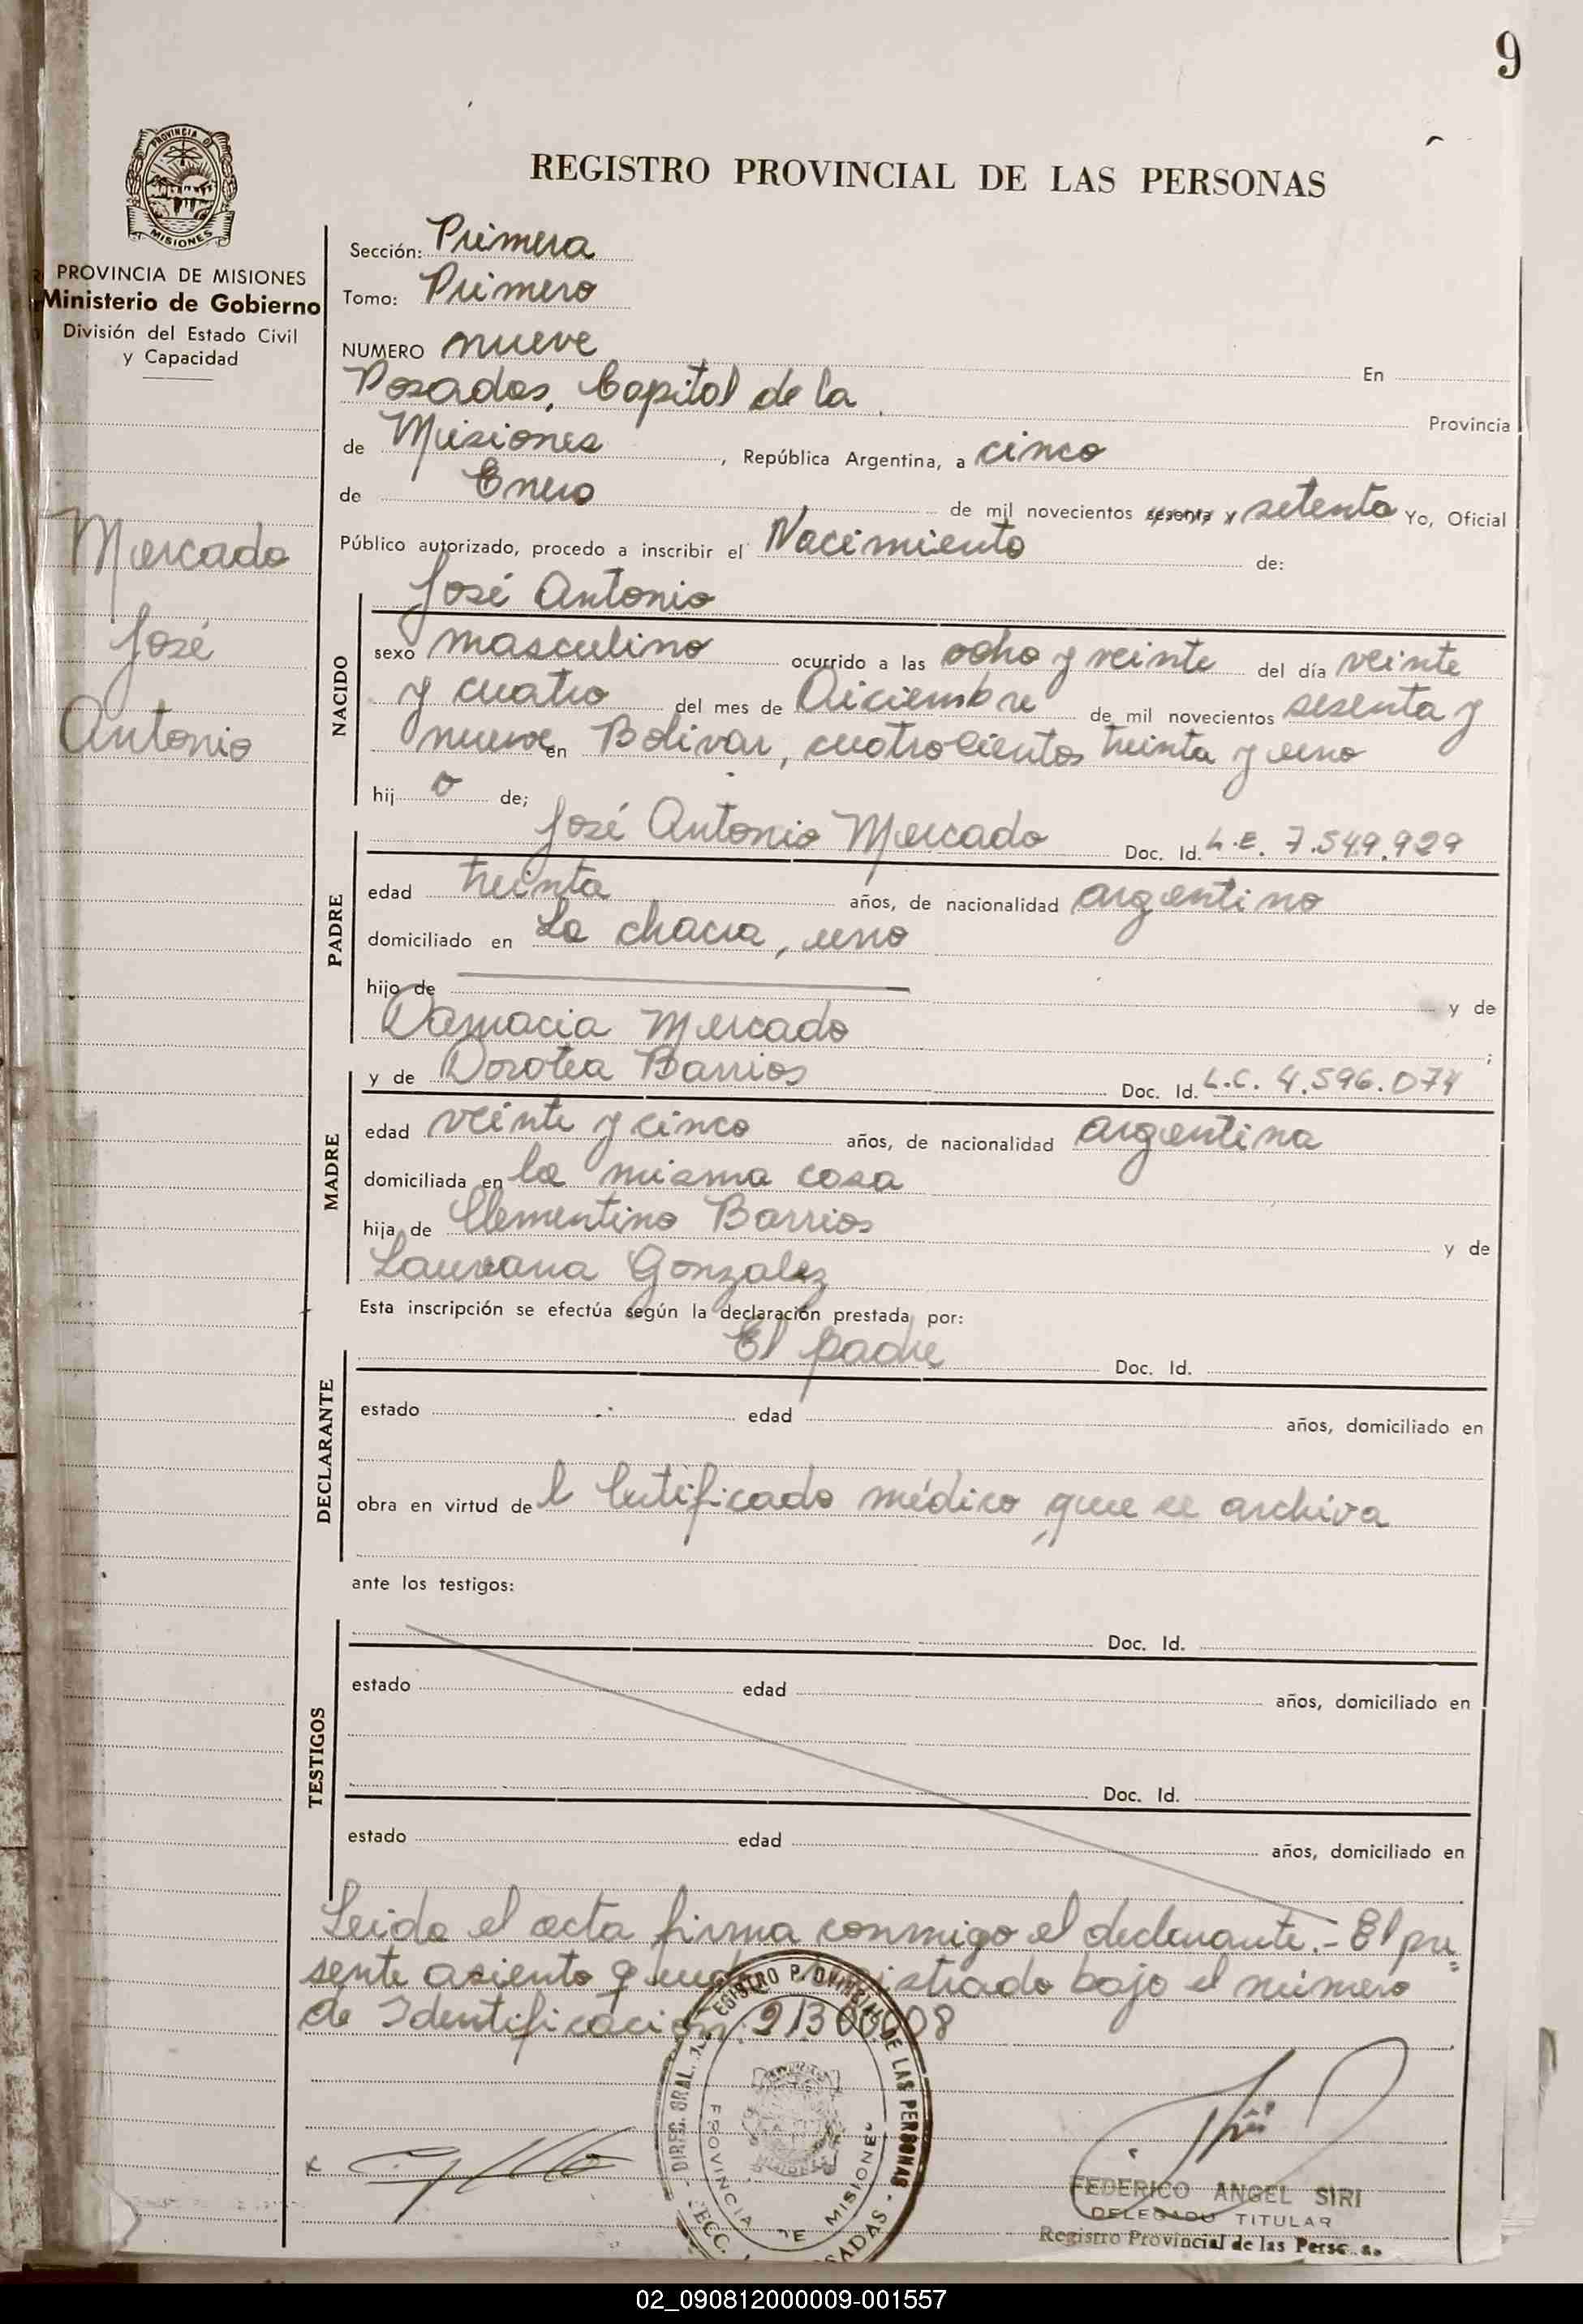 9
REGISTRO PROVINCIAL DE LAS PERSONAS
PROVINCIA DE MISIONES
PROVINCIA DE MISIONES
Ministerio de Gobierno
División del Estado Civil
y Capacidad
Mercado
José
Antonio
Sección: Primera
Tomo: Primero
NUMERO nueve En
Posadas, Capital de la Provincia
de Misiones, República Argentina, a cinco
de Enero de mil novecientos sesenta y setenta Yo, Oficial
Público autorizado, procedo a inscribir el Nacimiento de:
NACIDO
José Antonio
sexo masculino ocurrido a las ocho y veinte del día veinte
y cuatro del mes de Diciembre de mil novecientos sesenta y
nueve en Bolivar, cuatrocientos treinta y uno
hij o de;
PADRE
José Antonio Mercado Doc. Id. L.E. 7.549.929
edad treinta años, de nacionalidad argentino
domiciliado en La chacra, uno
hijo de y de
Damacia Mercado ;
MADRE
y de Dorotea Barrios Doc. Id. L.C. 4.596.074
edad veinte y cinco años, de nacionalidad argentina
domiciliada en la misma casa
hija de Clementino Barrios y de
Laureana Gonzalez
Esta inscripción se efectúa según la declaración prestada por:
DECLARANTE
El padre Doc. Id.
estado edad años, domiciliado en
obra en virtud de l Certificado médico que se archiva
ante los testigos:
TESTIGOS
Doc. Id.
estado edad años, domiciliado en
Doc. Id.
estado edad años, domiciliado en
Leida el acta firma conmigo el declarante.- El pre
sente asiento queda registrado bajo el número
de Identificación: 21300008
DIREC. GRAL. DEL REGISTRO PROVINCIAL DE LAS PERSONAS - SECC. POSADAS -
PROVINCIA DE MISIONES
x
FEDERICO ANGEL SIRI
DELEGADO TITULAR
Registro Provincial de las Personas
02_090812000009-001557